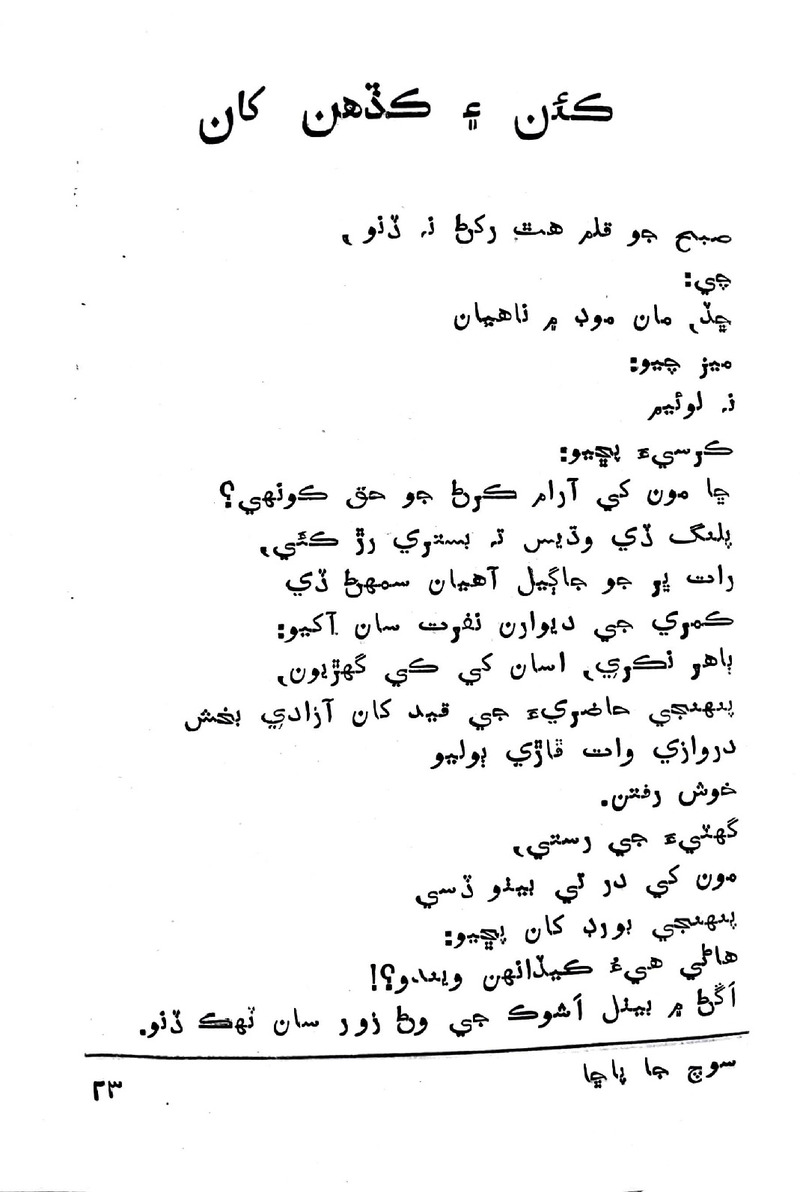 ڪئن ۽ ڪڏهن کان
صبح جو قلم هٿ رکڻ نہ ڏنو,
چي:
ڇڏ, مان موڊ ۾ ناهيان
ميز چيو:
نہ لوئيم
ڪرسيءَ پڇيو:
ڇا مون کي آرام ڪرڻ جو حق ڪونهي؟
پلنگ ڏي وڌيس تہ بستري رڙ ڪئي,
رات ڀر جو جاڳيل آهيان سمهڻ ڏي
ڪمري جي ديوارن نفرت سان آکيو:
ٻاهر نڪري, اسان کي ڪي گهڙيون,
پنهنجي حاضريءَ جي قيد کان آزادي بخش
دروازي وات ڦاڙي ٻوليو
خوش رفتن.
گهٽيءَ جي رستي,
مون کي در تي بيٺو ڏسي
پنهنجي بورڊ کان پڇيو:
هاڻي هيءُ ڪيڏانهن ويندو؟!
اَڱڻ ۾ بيٺل اَشوڪ جي وڻ زور سان ٽهڪ ڏنو.
سوچ جا پاڇا
٢٣